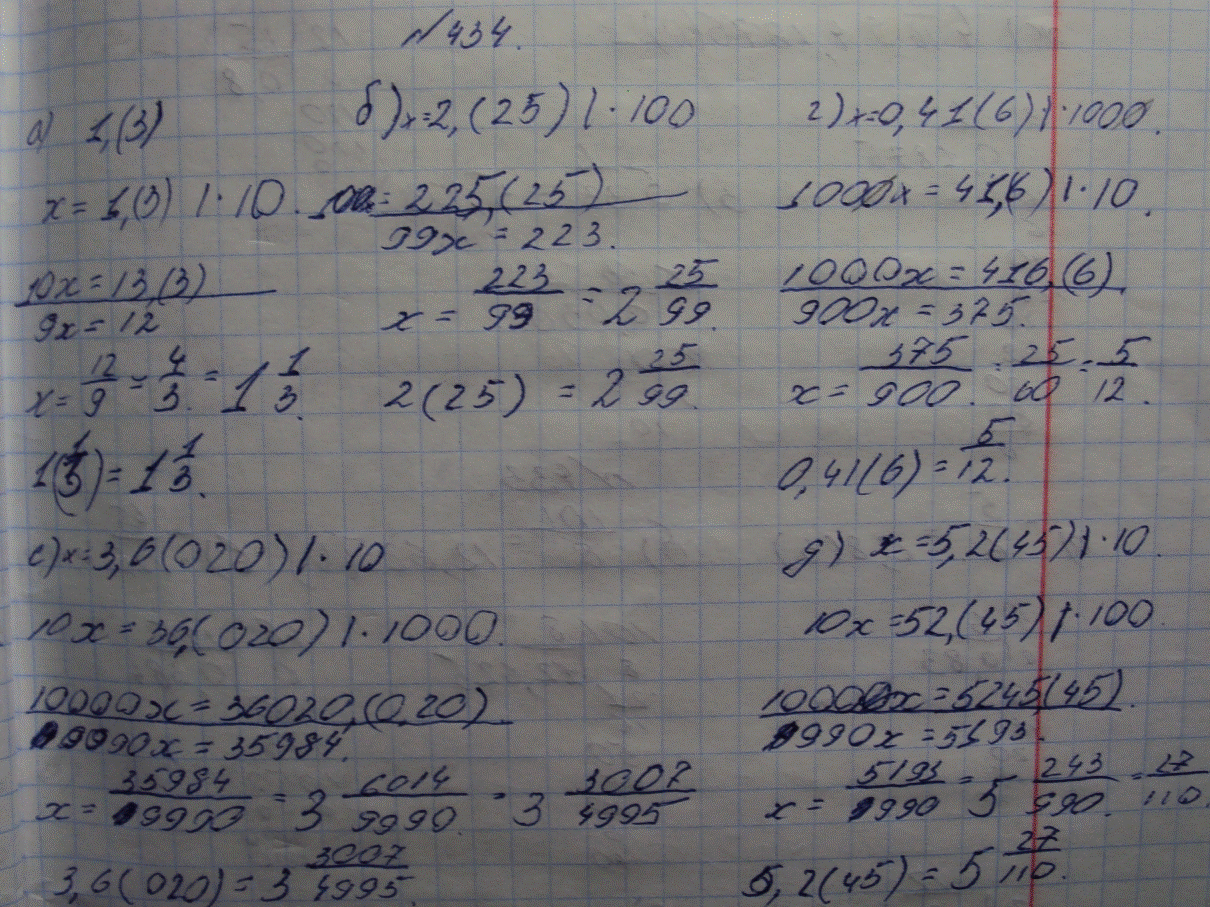 №434.
а) 1,(3)
x = 1,(3) |·10.
10x = 13,(3)
9x = 12
x = 12/9 = 4/3 = 1 1/3.
1(1/3) = 1 1/3.
б) x=2,(25) |·100
100x = 225,(25)
99x = 223.
x = 223/99 = 2 25/99.
2(25) = 2 25/99.
г) x=0,41(6) |·1000.
1000x = 41,(6) |·10.
1000x = 416,(6)
900x = 375.
x = 375/900 = 25/60 = 5/12.
0,41(6) = 5/12.
е) x=3,6(020) |·10
10x = 36,(020) |·1000.
10000x = 36020,(020)
9990x = 35984.
x = 35984/9990 = 3 6014/9990 = 3 3007/4995
3,6(020) = 3 3007/4995.
д) x=5,2(45) |·10.
10x =52,(45) |·100.
1000x = 5245,(45).
990x = 5193.
x = 5193/990 = 5 243/990 = 27/110.
5,2(45) = 5 27/110.